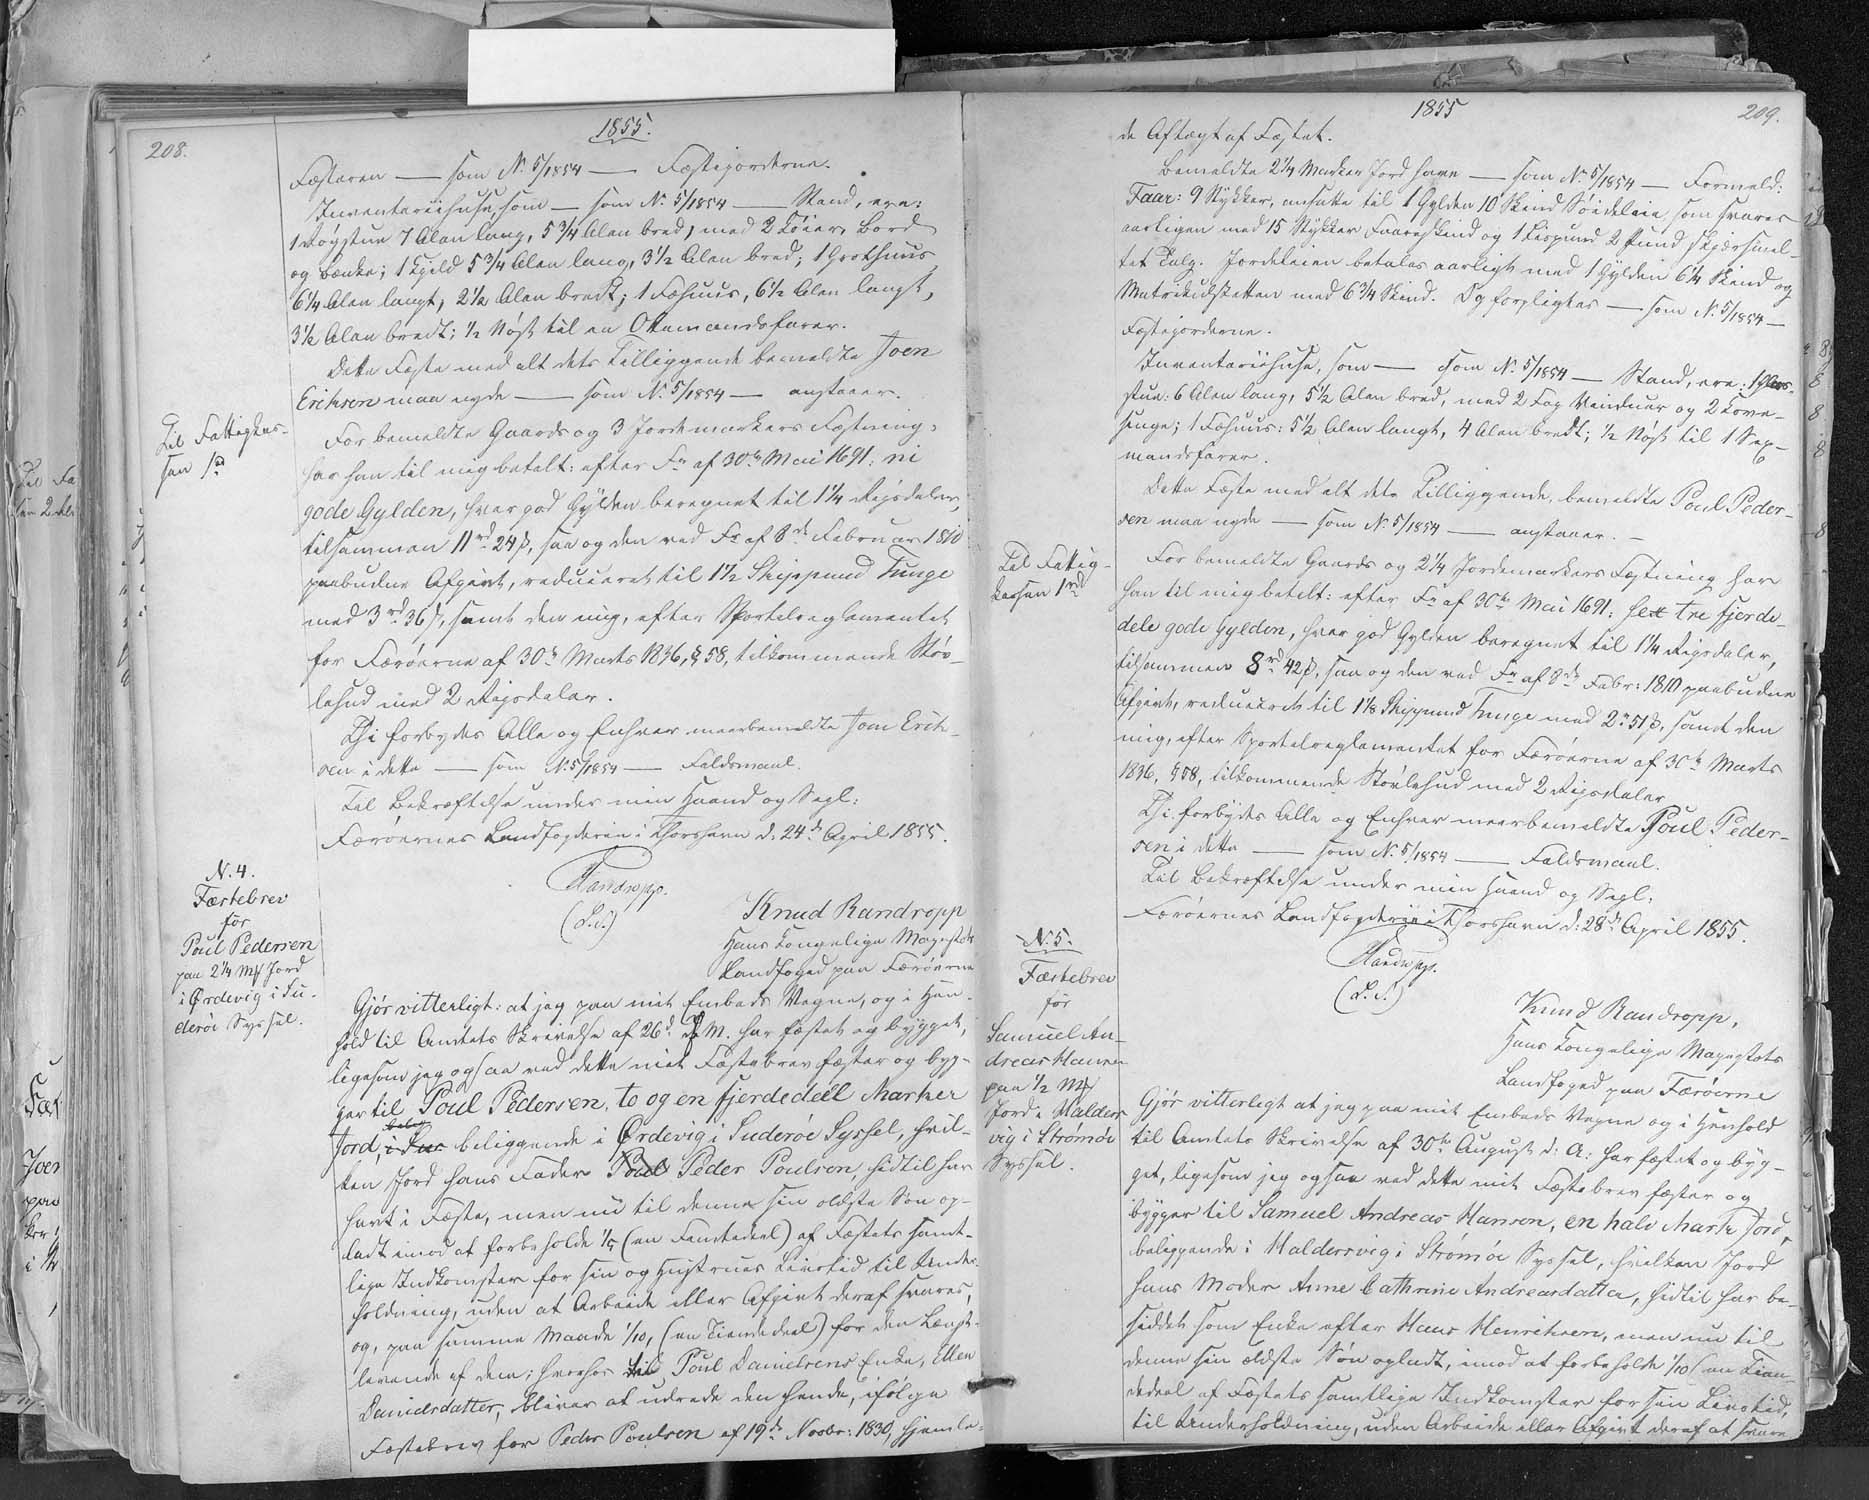 208.
1855.
Fæsteren — som N. 5/1854 — Fæstejorderne.
Inventariihuse, som — som N. 5/1854 — Stand, ere:
1 Røgstue 7 Alen lang, 5 3/4 Alen bred, med 2 Døier, Bord
og Bænke; 1 Kjeld 5 3/4 Alen lang, 3 1/2 Alen bred; 1 Grothuus
6 1/4 Alen langt, 2 1/2 Alen bredt; 1 Fæhuus, 6 1/2 Alen langt,
3 1/2 Alen bredt; 1/2 Nøst til en Ottemandsfarer.
Dette Fæste med alt dets Tilliggende bemeldte Joen
Eriksen maa nyde — som N. 5/1854 — angaaer.
Til Fattigkas-
sen 1rd
For bemeldte Gaards og 3 Jordemarkers Fæstning,
har han til mig betalt: efter Fr af 30te Mai 1691: ni
gode Gylden, hver god Gylden beregnet til 1 1/4 Rigsdaler,
tilsammen 11rd 24ß, saa og den ved Fr af 8de Februar 1810
paabudne Afgivt, reduceret til 1 1/2 Skippund Tunge
med 3rd 36ß, samt den mig, efter Sportelreglementet
for Færøerne af 30te Marts 1836, § 58, tilkommende Støv-
lehud med 2 Rigsdaler.
Thi forbydes Alle og Enhver meerbemeldte Joen Erik-
sen i dette — som N. 5/1854 — Faldsmaal.
Til Bekræftelse under min Haand og Segl.
Færøernes Landfogderie i Thorshavn d: 24de April 1855.
Randropp.
(L.S.)
N. 4.
Fæstebrev
for
Poul Pedersen
paa 2 1/4 Mk Jord
i Ørdevig i Su-
derøe Syssel.
Knud Randropp
Hans Kongelige Majestæts
Landfoged paa Færøerne
Gjør vitterligt: at jeg paa mit Embeds Vegne, og i Hen-
hold til Amtets Skrivelse af 26de d. M. har fæstet og bygget,
ligesom jeg ogsaa ved dette mit Fæstebrev fæster og byg-
ger til Poul Pedersen, to og en fjerdedeel Marker
Jord, i Su beliggende i Ørdevig i Suderøe Syssel, hvil-
ken Jord hans Fader Poul Peder Poulsen, hidtil har
havt i Fæste, men nu til denne sin ældste Søn op-
ladt imod at forbeholde 1/5 (en Femtedeel) af Fæstets samt-
lige Indkomster for sin og Hustrues Livstid til Under-
holdning, uden at Arbeide eller Afgivt deraf svares,
og, paa samme Maade 1/10, (en Tiendedeel) for den Længst-
levende af dem; hvorhos til Poul Danielsens Enke, Ellen
Danielsdatter, bliver at udrede den hende, ifølge
Fæstebrev for Peder Poulsen af 19de Novbr: 1830, hjemle-
1855
209.
de Aftægt af Fæstet.
Bemeldte 2 1/4 Marker Jord have — som N. 5/1854 — Formeld:
Faar: 9 Stykker, ansatte til 1 Gylden 10 Skind Søideleie, som svares
aarligen med 15 Stykker Faareskind og 1 Lispund 2 Pund skjærsmel-
tet Talg. Jordeleien betales aarligt med 1 Gylden 6 1/4 Skind og
Matrikulskatten med 6 3/4 Skind. Og forpligtes — som N. 5/1854 —
Fæstejorderne.
Inventariihuse, som — som N. 5/1854 — Stand, ere: 1 Glas-
stue: 6 Alen lang, 5 1/2 Alen bred, med 2 Fag Vinduer og 2 Sove-
senge; 1 Fæhuus: 5 1/2 Alen langt, 4 Alen bredt; 1/2 Nøst til 1 Sex-
mandsfarer.
Dette Fæste med alt dets Tilliggende, bemeldte Poul Peder-
sen maa nyde — som N. 5/1854 — angaaer. —
Til Fattig-
kassen 1rd
For bemeldte Gaards og 2 1/4 Jordemarkers Fæstning har
han til mig betalt: efter Fr af 30te Mai 1691: sex tre fjerde-
dele gode Gylden, hver god Gylden beregnet til 1 1/4 Rigsdaler,
tilsammen 8rd 42ß, saa og den ved Fr af 8de Febr: 1810 paabudne
Afgivt, reduceret til 1 1/8 Skippund Tunge med 2rd 51ß, samt den
mig, efter Sportelreglementet for Færøerne af 30te Marts
1836, § 58, tilkommende Støvlehud med 2 Rigsdaler
Thi forbydes Alle og Enhver meerbemeldte Poul Peder-
sen i dette — som N. 5/1854 — Faldsmaal.
Til Bekræftelse under min Haand og Segl.
Færøernes Landfogderie i Thorshavn d: 28de April 1855.
Randropp.
(L.S.)
N. 5.
Fæstebrev
for
Samuel An-
dreas Hansen
paa 1/2 Mk
Jord i Halders
vig i Strømøe
Syssel.
Knud Randropp,
Hans Kongelige Majestæts
Landfoged paa Færøerne
Gjør vitterligt at jeg paa mit Embeds Vegne og i Henhold
til Amtets Skrivelse af 30te August d: A: har fæstet og byg-
get, ligesom jeg ogsaa ved dette mit Fæstebrev fæster og
bygger til Samuel Andreas Hansen, en halv Mark Jord,
beliggende i Haldersvig i Strømøe Syssel, hvilken Jord
hans Moder Anne Cathrine Andreasdatter, hidtil har be-
siddet som Enke efter Hans Henriksen, men nu til
denne sin ældste Søn opladt, imod at forbeholde 1/10 (en Tien-
dedeel af Fæstets samtlige Indkomster for sin Livstid,
til Underholdning, uden Arbeide eller Afgivt deraf at svare